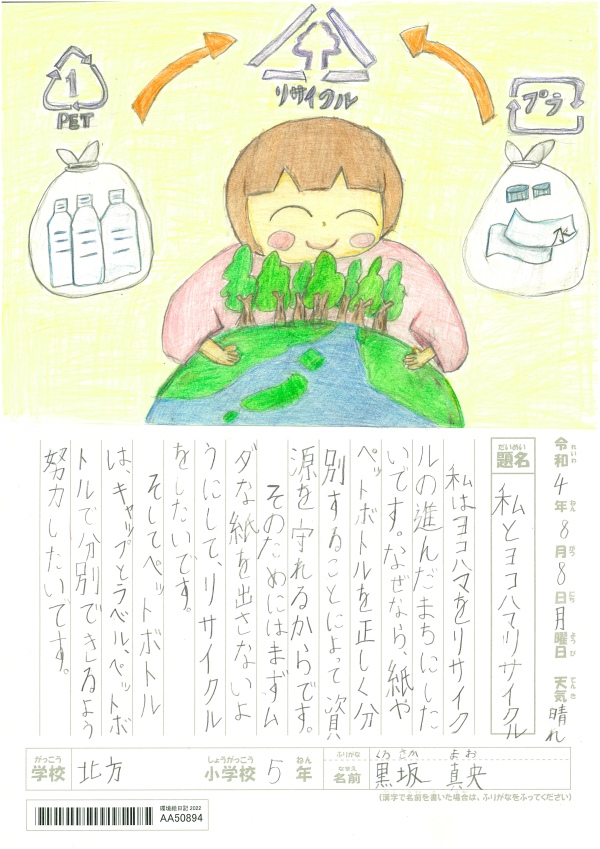 1
PET
リサイクル
プラ
令和4年8月8日月曜日 天気 晴れ
れいわ ねん がつ にち ようび てんき
だいめい
題名 私とヨコハマリサイクル
私はヨコハマをリサイク
ルの進んだまちにした
いです。なぜなら、紙や
ペットボトルを正しく分
別することによって資
源を守れるからです。
そのためにはまずム
ダな紙を出さないよ
うにして、リサイクル
をしたいです。
そしてペットボトル
は、キャップとラベル、ペットボ
トルで分別できるよう
努力したいです。
がっこう しょうがっこう ねん ふりがな くろさか まお
学校 北方 小学校 5年 なまえ 名前 黒坂 真央
(漢字で名前を書いた場合は、ふりがなをふってください)
環境絵日記 2022
AA50894